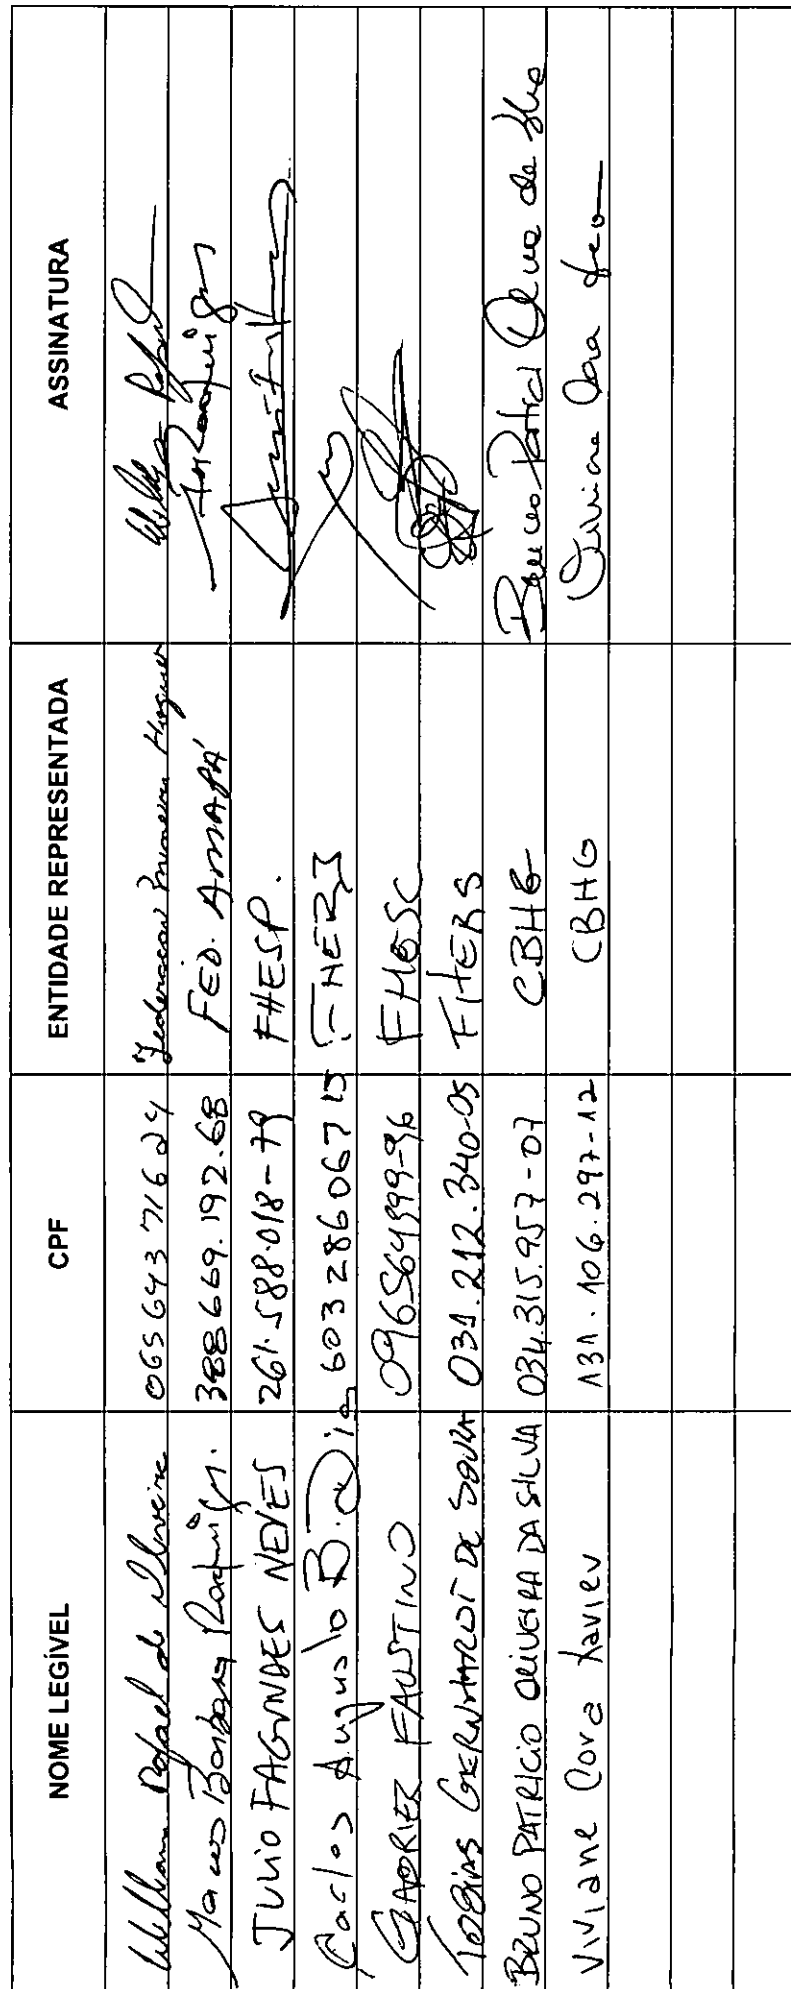 NOME LEGÍVEL CPF ENTIDADE REPRESENTADA ASSINATURA
William Rafael de Oliveira 06564371624 Federacao Mineira Hoquei
Marcos Rodrigues. 388669.192.68 FED. AMAPÁ
JULIO FAGUNDES NEVES 261.588.018-79 FHESP.
Carlos Augusto B. Dias 603286067 15 FHERJ
GABRIEL FAUSTINO 096564999-96 FHESC
TOBIAS GERNHARDT DE SOUZA 031.212.340-05 FHERS
BRUNO PATRICIO OLIVEIRA DA SILVA 034.315.957-07 CBHG Bruno Patricio
Viviane Cora Xavier 131.106.297-12 CBHG Viviane Cora